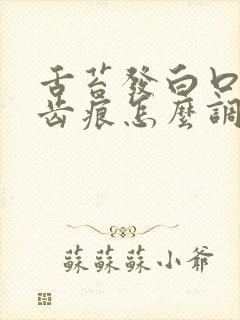 舌苔發白口
齒痕怎麼調
蘇蘇蘇小爺